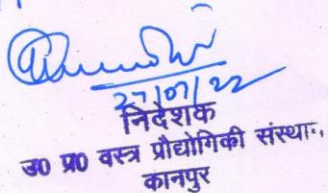 27/07/22
निदेशक
उ0 प्र0 वस्त्र प्रौद्योगिकी संस्थान,
कानपुर